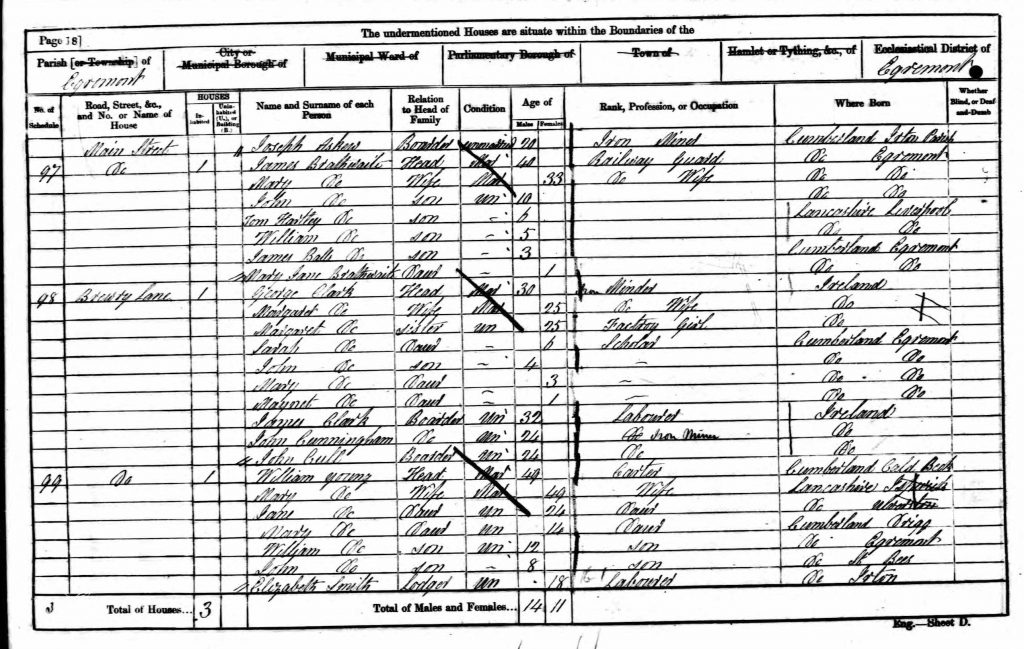 The undermentioned Houses are situate within the Boundaries of the
Page 18]
Parish [or Township] of
Egremont
City or Municipal Borough of
Municipal Ward of
Parliamentary Borough of
Town of
Hamlet or Tything, &c., of
Ecclesiastical District of
Egremont
No. of Schedule
Road, Street, &c., and No. or Name of House
HOUSES
Inhabited
Uninhabited (U.), or Building (B.)
Name and Surname of each Person
Relation to Head of Family
Condition
Age of
Males
Females
Rank, Profession, or Occupation
Where Born
Whether Blind, or Deaf-and-Dumb
Main Street Joseph Boarder unmarried 20 Iron Miner Cumberland Irton Parish
97 Do 1 James Brathwaite Head Mar 40 Railway Guard Do Egremont
Mary Do Wife Mar 33 Do Wife Do Do
John Do son un 10 Do Do
Tom Hartley Do son - 6 Lancashire Liverpool
William Do son - 5 Do Do
James Do son - 3 Cumberland Egremont
Mary Jane Brathwait Daur - 1 Do Do
98 Brewry Lane 1 George Clark Head Mar 30 Iron Minder Ireland
Margaret Do Wife Mar 25 Do Wife Do
Margaret Do sister un 25 Factroy Girl Do
Sarah Do Daur - 6 Scholar Cumberland Egremont
John Do son - 4 - Do Do
Mary Do Daur 3 - Do Do
Magret Do Daur - 1 Do Do
James Clark Boarder Un 32 Labourer Ireland
John Cunningham Do Un 24 Do Iron Miner Do
John Boarder Un 24 Do Do
99 Do 1 William young Head Mar 49 Carter Cumberland Cald Beck
Mary Do Wife Mar 49 Wife Lancashire
Jane Do Daur Un 24 Daur Do Ulverston
Mary Do Daur Un 14 Daur Cumberland Drigg
William Do son Un 12 son Do Egremont
John Do son - 8 son Do St Bees
Elizabeth Smith Lodger Un 18 Labourer Do Irton
3 Total of Houses... 3 Total of Males and Females... 14 11
Eng.—Sheet D.